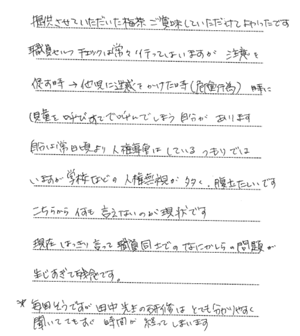 提供させていただいた梅茶 ご賞味していただけてよかったです
職員セルフチェックは常々行ってはいますが ご注意を
促す時 → 他児に迷惑をかけた時(危険行為) 時に
児童を呼び捨てで呼んでしまう自分があります
自分は常日頃より人権尊重はしているつもりでは
いますが 学校などの人権無視が多く、腹立たしいです
こちらから何も言えないのが現状です
現在はっきり言って職員同士でのなにかしらの問題が
生じすぎて残念です。
* 毎回そうですが 田中先生の研修は とても分かりやすく
聞いてても 時間が経ってしまいます